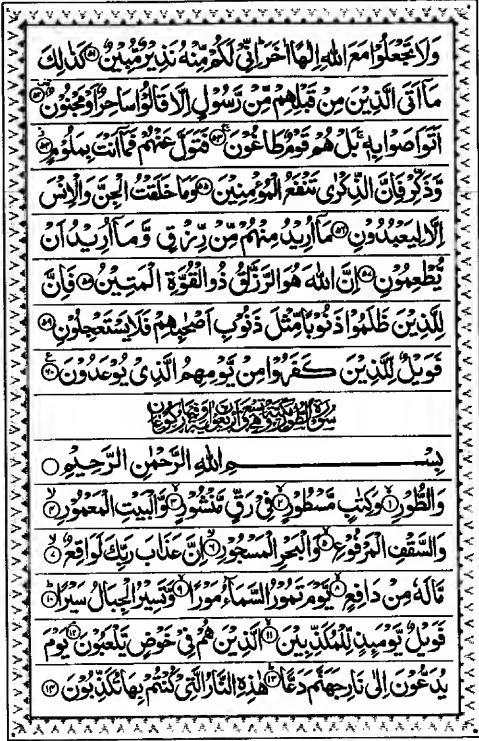 وَلَا تَجْعَلُوْا مَعَ اللهِ اِلٰهًا اٰخَرَ ؕ اِنِّیْ لَكُمْ مِّنْهُ نَذِیْرٌ مُّبِیْنٌ ۵۱ كَذٰلِكَ
مَاۤ اَتَی الَّذِیْنَ مِنْ قَبْلِهِمْ مِّنْ رَّسُوْلٍ اِلَّا قَالُوْا سَاحِرٌ اَوْ مَجْنُوْنٌ ۵۲
اَتَوَاصَوْا بِهٖ ۚ بَلْ هُمْ قَوْمٌ طَاغُوْنَ ۵۳ فَتَوَلَّ عَنْهُمْ فَمَاۤ اَنْتَ بِمَلُوْمٍ ۵۴
وَّذَكِّرْ فَاِنَّ الذِّكْرٰی تَنْفَعُ الْمُؤْمِنِیْنَ ۵۵ وَمَا خَلَقْتُ الْجِنَّ وَالْاِنْسَ
اِلَّا لِیَعْبُدُوْنِ ۵۶ مَاۤ اُرِیْدُ مِنْهُمْ مِّنْ رِّزْقٍ وَّمَاۤ اُرِیْدُ اَنْ
یُّطْعِمُوْنِ ۵۷ اِنَّ اللهَ هُوَ الرَّزَّاقُ ذُو الْقُوَّةِ الْمَتِیْنُ ۵۸ فَاِنَّ
لِلَّذِیْنَ ظَلَمُوْا ذَنُوْبًا مِّثْلَ ذَنُوْبِ اَصْحٰبِهِمْ فَلَا یَسْتَعْجِلُوْنِ ۵۹
فَوَیْلٌ لِّلَّذِیْنَ كَفَرُوْا مِنْ یَّوْمِهِمُ الَّذِیْ یُوْعَدُوْنَ ۶۰
سُوْرَةُ الطُّوْرِ مَكِّیَّةٌ وَّهِیَ تِسْعٌ وَّاَرْبَعُوْنَ اٰیَةً وَّفِیْهَا رُكُوْعَانِ
بِسْمِ اللهِ الرَّحْمٰنِ الرَّحِیْمِ
وَالطُّوْرِ ۱ وَكِتٰبٍ مَّسْطُوْرٍ ۲ فِیْ رَقٍّ مَّنْشُوْرٍ ۳ وَّالْبَیْتِ الْمَعْمُوْرِ ۴
وَالسَّقْفِ الْمَرْفُوْعِ ۵ وَالْبَحْرِ الْمَسْجُوْرِ ۶ اِنَّ عَذَابَ رَبِّكَ لَوَاقِعٌ ۷
مَّا لَهٗ مِنْ دَافِعٍ ۸ یَّوْمَ تَمُوْرُ السَّمَآءُ مَوْرًا ۹ وَّتَسِیْرُ الْجِبَالُ سَیْرًا ۱۰
فَوَیْلٌ یَّوْمَىِٕذٍ لِّلْمُكَذِّبِیْنَ ۱۱ الَّذِیْنَ هُمْ فِیْ خَوْضٍ یَّلْعَبُوْنَ ۱۲ یَوْمَ
یُدَعُّوْنَ اِلٰی نَارِ جَهَنَّمَ دَعًّا ۱۳ هٰذِهِ النَّارُ الَّتِیْ كُنْتُمْ بِهَا تُكَذِّبُوْنَ ۱۴